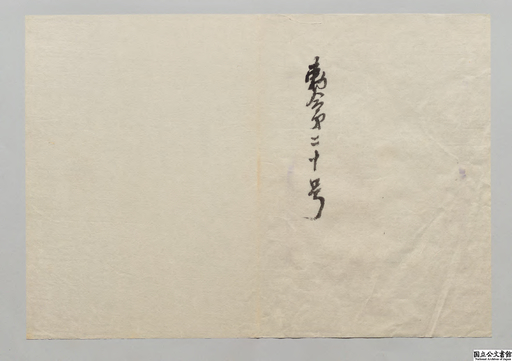 勅令第二十号
国立公文書館
National Archives of Japan